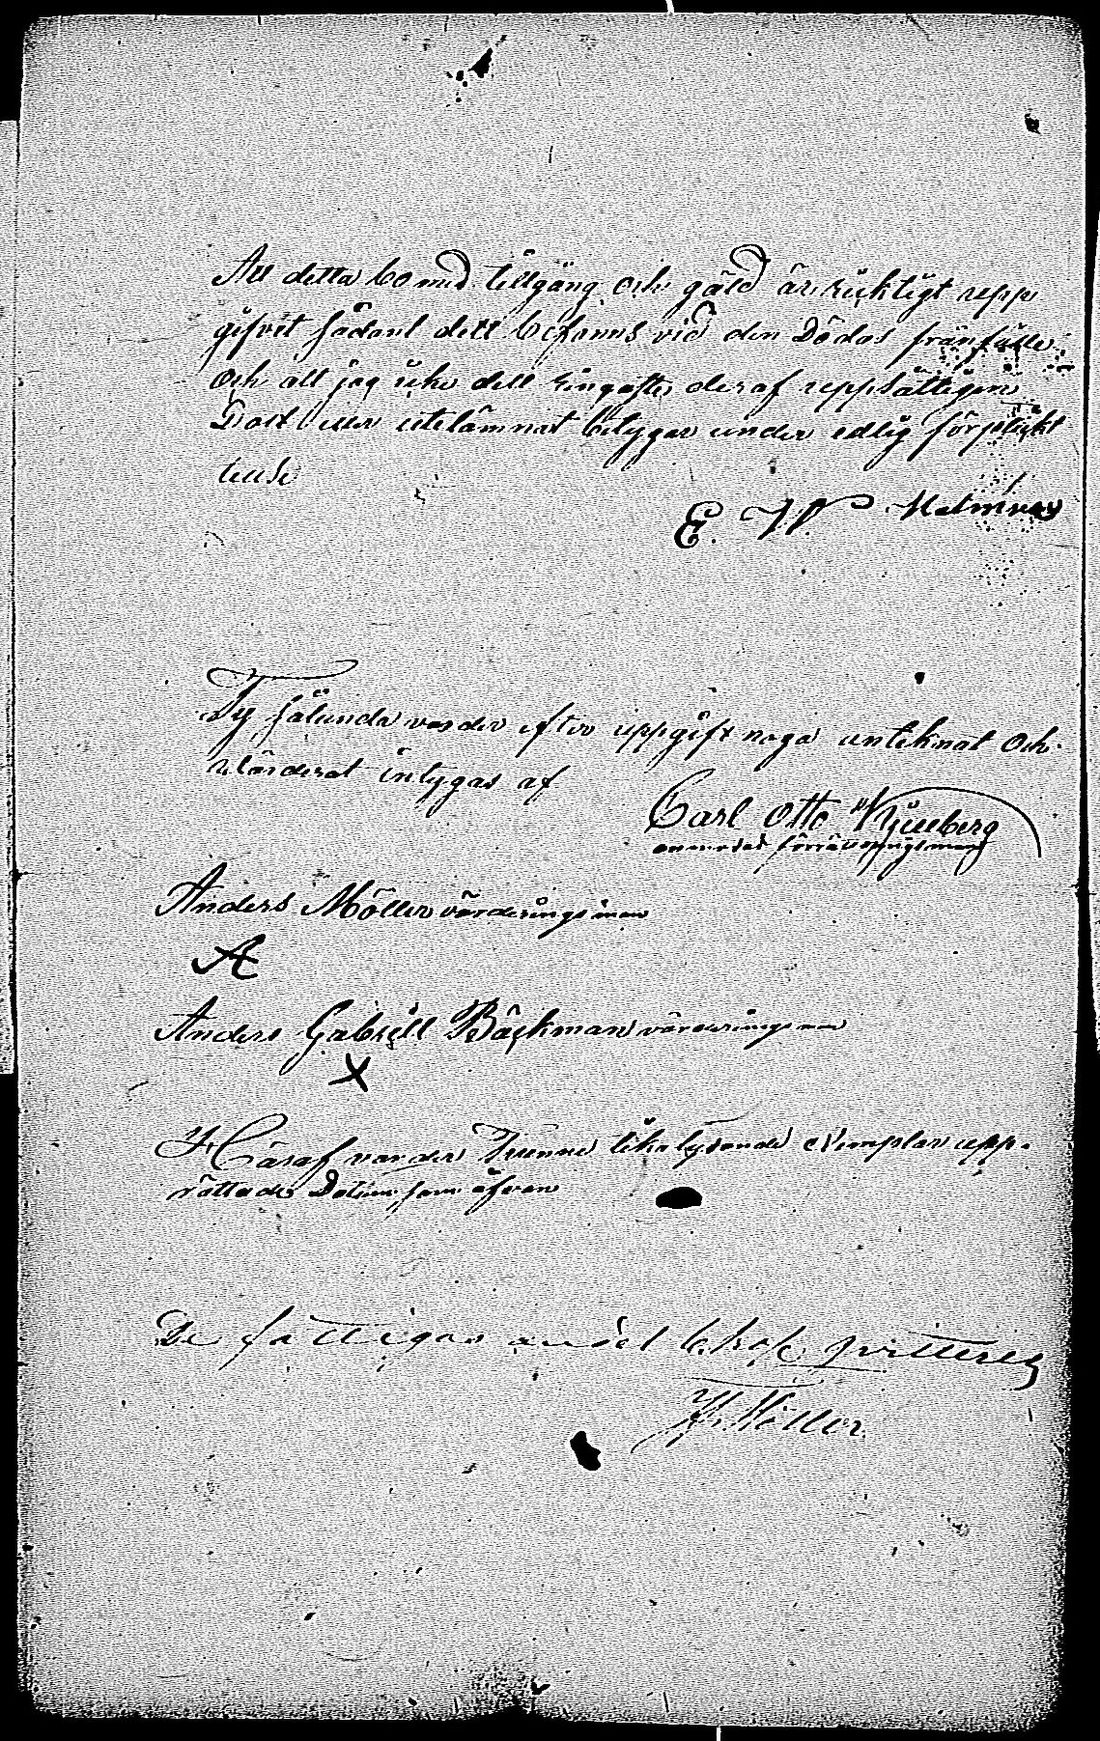 Att detta bo med tillgäng och gäld är ricktigt upp
gifvit sådant dett befanns vid den Dödas frånfälle
Och att jag icke dett ringaste deraf uppsåttigen
Dolt eller utelämnat betygar under edlig förplickt
telse
E. W. Malmros
Ty sålunda varder efter uppgift noga anteknat Och
värderat intygas af
Carl Otto Kjellberg
anmodad förrättningsman
Anders Möller värderingsman
A
Anders Gabriell Bäckman värderingsman
X
Häraf varder Tvenne lika lydande exemplar upp-
rättade Datum som ofvan
De fattigas andel bekof qvitteras
Möller